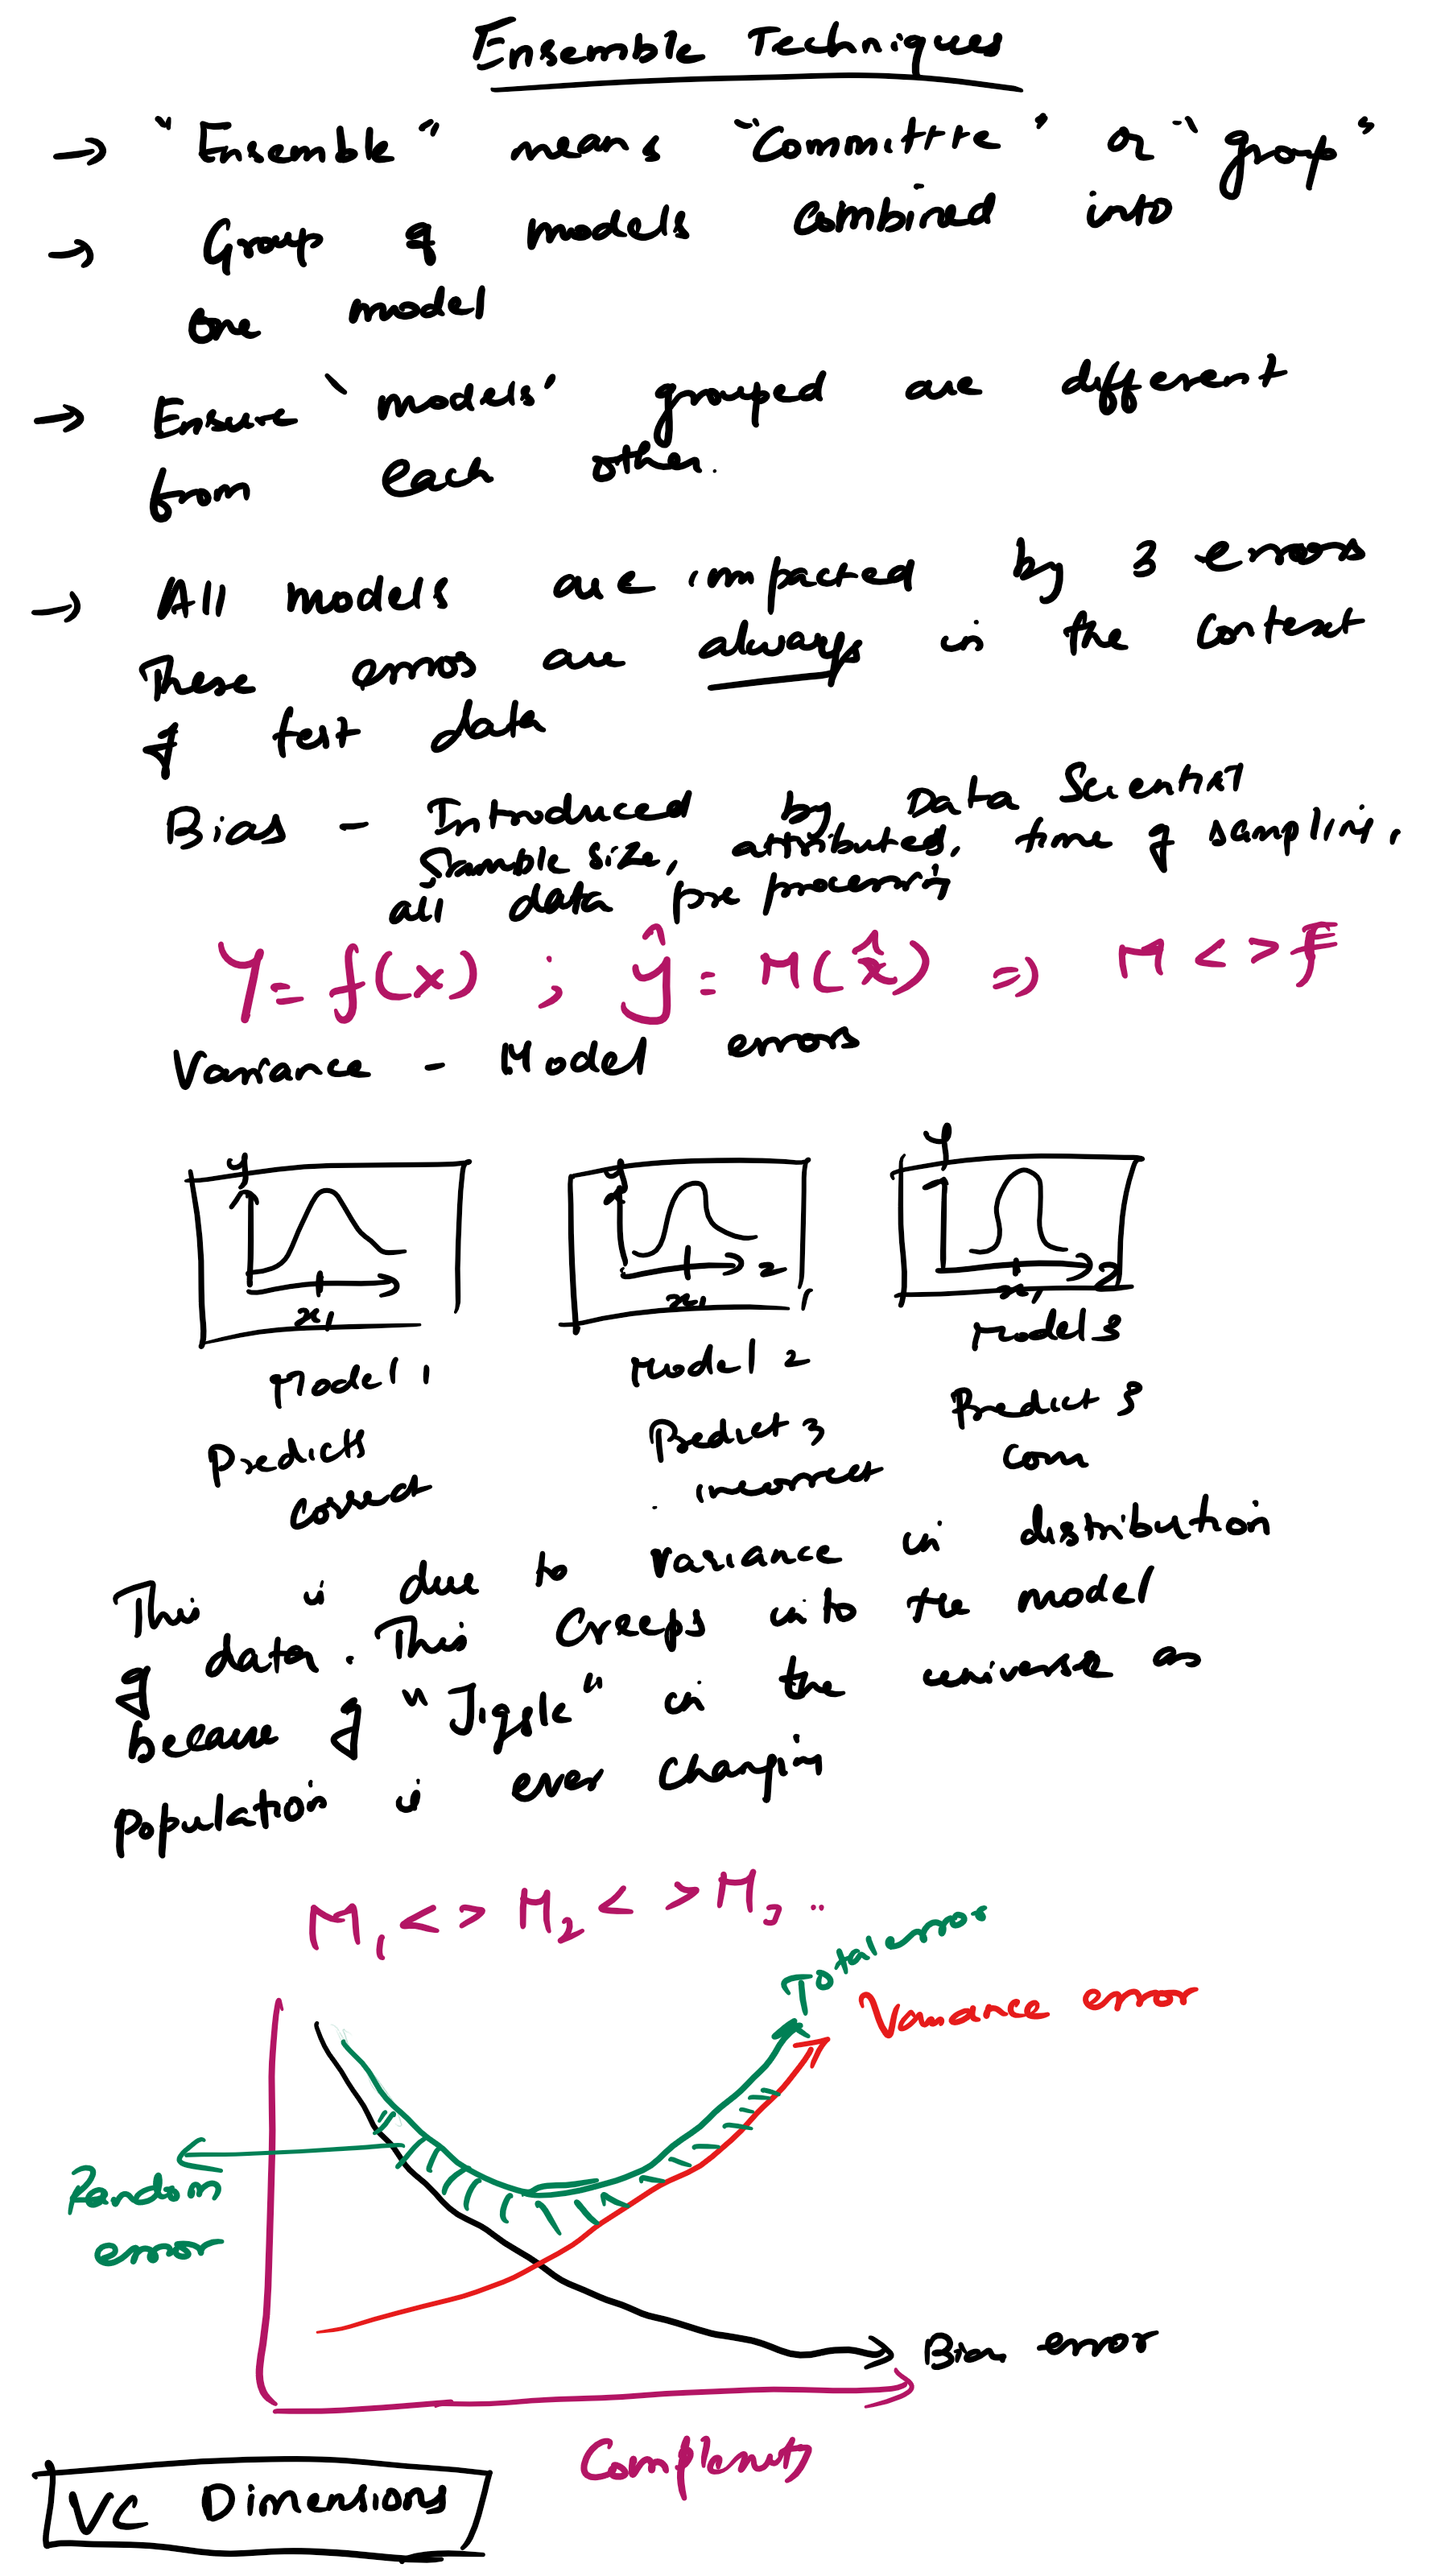 Ensemble Techniques
→ "Ensemble" means "Committre" or "group"
→ Group of models combined into
one model
→ Ensure 'models' grouped are different
from each other.
→ All models are impacted by 3 errors
These erros are always in the context
of test data
Bias - Introduced by Data Scientist
Sample size, attributes, time of sampling,
all data pre processing
Y = f(x) ; ŷ = M(x̂) => M < > F
Variance - Model errors
y y y
x1 x1 2 x1 2
Model 1 Model 2 Model 3
Predicts Predict 3 Predict 3
correct incorrect corr
This is due to variance in distribution
of data. This creeps into the model
because of "Jiggle" in the universe as
population is ever changin
M1 < > M2 < > M3 ..
Total error
Variance error
Random
error
Bias error
Complexity
VC Dimensions